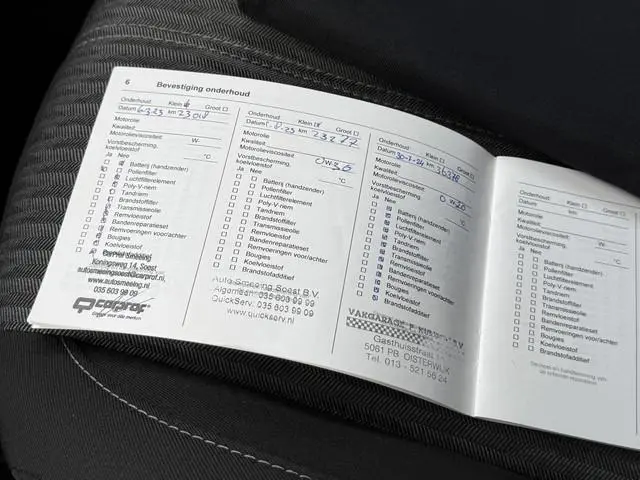 6 Bevestiging onderhoud
Onderhoud: Klein Groot
Datum 6-3-23 km 23018
Motorolie
Kwaliteit:
Motorolieviscositeit: W-
Vorstbescherming, koelvloeistof: °C
Ja Nee
Batterij (handzender)
Pollenfilter
Luchtfilterelement
Poly-V-riem
Tandriem
Brandstoffilter
Transmissieolie
Remvloeistof
Bandenreparatieset
Remvoeringen voor/achter
Bougies
Koelvloeistof
Brandstofadditief
Auto Smeeing
Koningsweg 14, Soest
autosmeeing@carprof.nl
www.autosmeeing.nl
035 603 99 09
carprof
Onderhoud: Klein Groot
Datum -8-23 km 23277
Motorolie
Kwaliteit:
Motorolieviscositeit: 0W-30
Vorstbescherming,
koelvloeistof: °C
Ja Nee
Batterij (handzender)
Pollenfilter
Luchtfilterelement
Poly-V-riem
Tandriem
Brandstoffilter
Transmissieolie
Remvloeistof
Bandenreparatieset
Remvoeringen voor/achter
Bougies
Koelvloeistof
Brandstofadditief
Auto Smeeing Soest B.V.
Algemeen: 035 603 99 09
QuickServ: 035 603 99 09
www.quickserv.nl
Onderhoud: Klein Groot
Datum 30-7-24 km 36378
Motorolie
Kwaliteit:
Motorolieviscositeit: 0 W-20
Vorstbescherming,
koelvloeistof: °C
Ja Nee
Batterij (handzender)
Pollenfilter
Luchtfilterelement
Poly-V-riem
Tandriem
Brandstoffilter
Transmissieolie
Remvloeistof
Bandenreparatieset
Remvoeringen voor/achter
Bougies
Koelvloeistof
Brandstofadditief
VAKGARAGE
Gasthuisstraat
5061 PB OISTERWIJK
Tel. 013 - 521 56 24
Onderhoud: Klein Groot
Datum km
Motorolie
Kwaliteit:
Motorolieviscositeit: W-
Vorstbescherming,
koelvloeistof: °C
Ja Nee
Batterij (handzender)
Pollenfilter
Luchtfilterelement
Poly-V-riem
Tandriem
Brandstoffilter
Transmissieolie
Remvloeistof
Bandenreparatieset
Remvoeringen voor/achter
Bougies
Koelvloeistof
Brandstofadditief